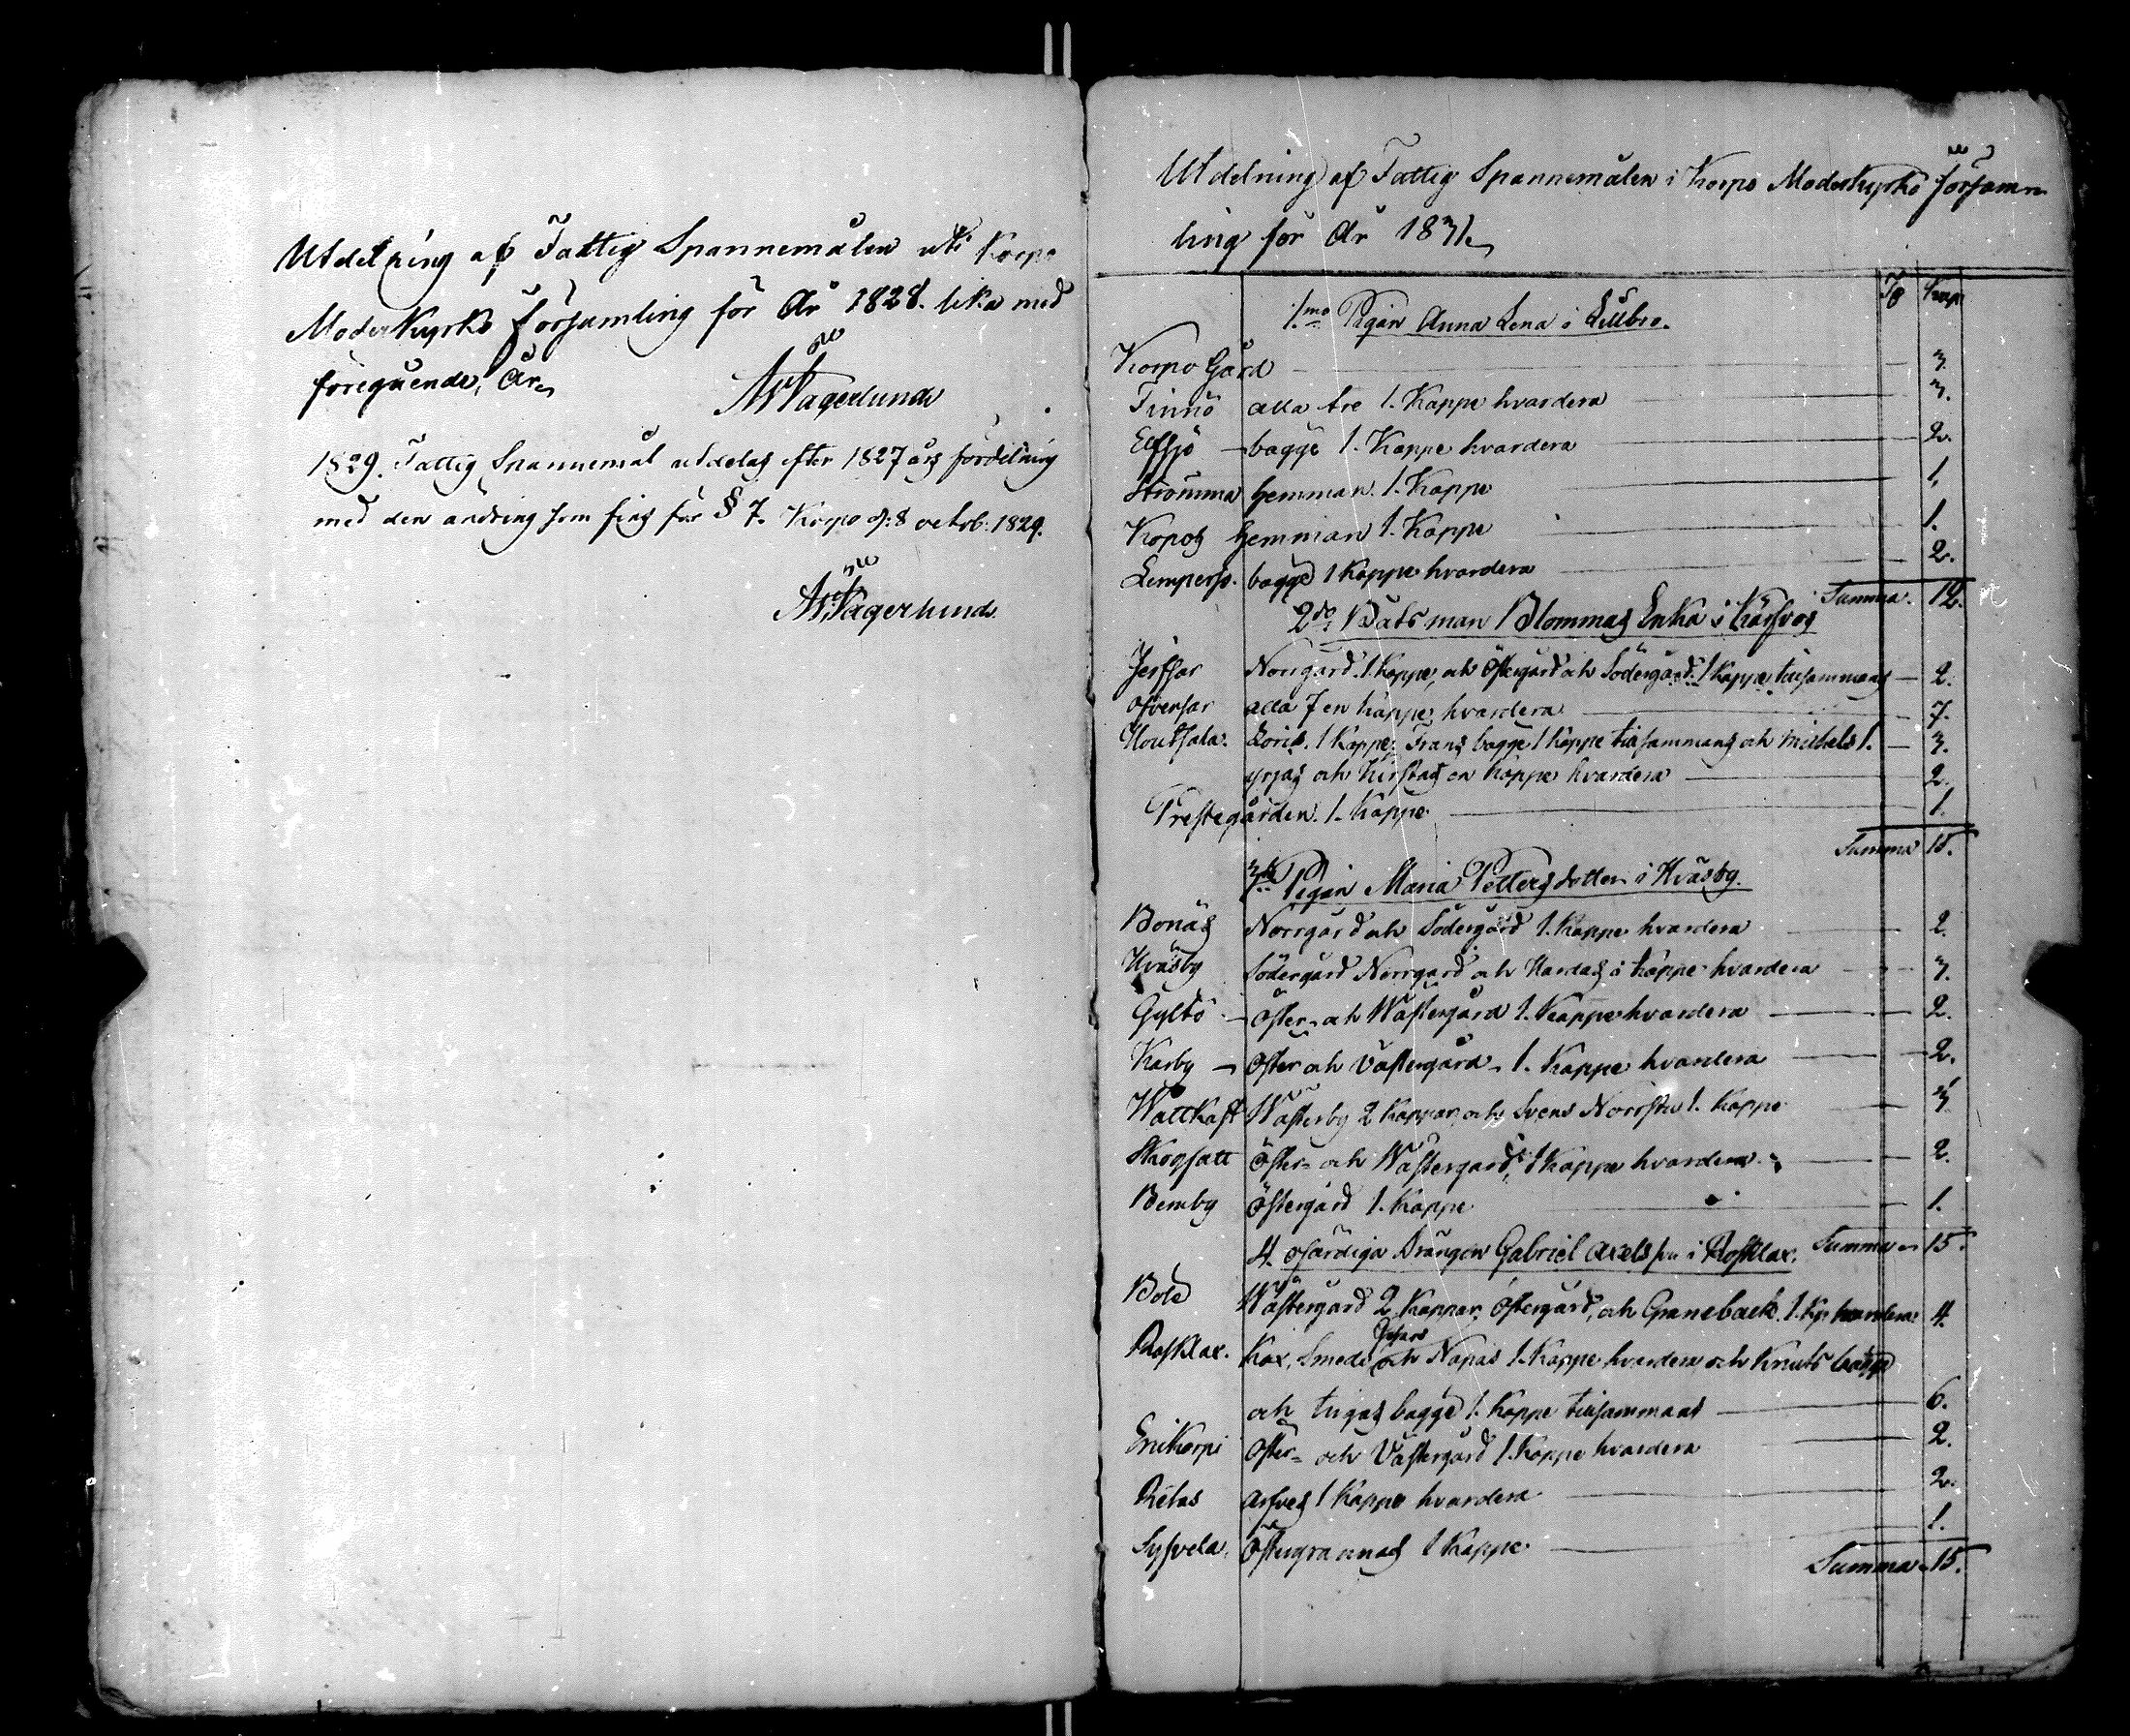 Utdelning af Fattig Spannemålen uti Korpo
Moderkyrko Församling för År 1828. lika med
föregående År.
1829. Fattig Spannemål utdelas efter 1827 års fördelning
med den ändring som fins för § 7. Korpo d: 8 octob: 1829.
Utdelning af Fattig Spannemålen i Korpo Moderkyrko Församm
ling för År 1831.
Kapp
1.mo Pigan Anna Lena i Lillbro.
Korpo Gård 3.
Finnö alla tre 1. Kappe hvardera 3.
Elfsjö bägge 1. Kappe hvardera 2.
Strömma hemman 1. Kappe 1.
Kopos hemman 1. Kappe 1.
Lempersö. bägge 1 Kappe hvardera 2.
Summa. 12.
2do Båtsman Blommas Enka i
Norrgård. 1 Kappe, och Östergård och Södergård. 1 Kappe tillsammans 2.
Öfversar alla 7 en kappe hvardera 7.
Houtsala. 1 Kappe. Frans bägge 1 kappe tillsammans och Michels 1. 3.
yrjas och Kirstas en kappe hvardera 2.
Prestegården. 1. Kappe 1.
Summa 15.
Pigan Maria Pettersdotter i Hväsby.
Bonäs Norrgård och Södergård 1. Kappe hvardera 2.
Hväsby Södergård Norrgård och kappe hvardera 3.
Gyltö Öster- och Wästergård 1. Kappe hvardera 2.
Karby Öster och Västergård 1. Kappe hvardera 2.
Wattkast Wästerby 2 Kappar, och Svens 1. Kappe 3
Skogsall Öster- och Wästergård, 1 Kappe hvardera 2.
Bemby Östergård 1. Kappe 1.
4. ofärdiga Drängen Gabriel Axelsson i Rosklax. Summa 15.
Wästergård 2 Kappar, Östergård, och Graneback. 1. Kp. hvardera 4.
Rosklax. Kax, Smeds och 1. Kappe hvardera och Knuts bägge
och bägge 1. Kappe tillsammans 6.
Öster- och Västergård 1. Kappe hvardera 2.
Retas Arfves 1 Kappe hvardera 2.
Östergrannas 1 Kappe 1.
Summa 15.